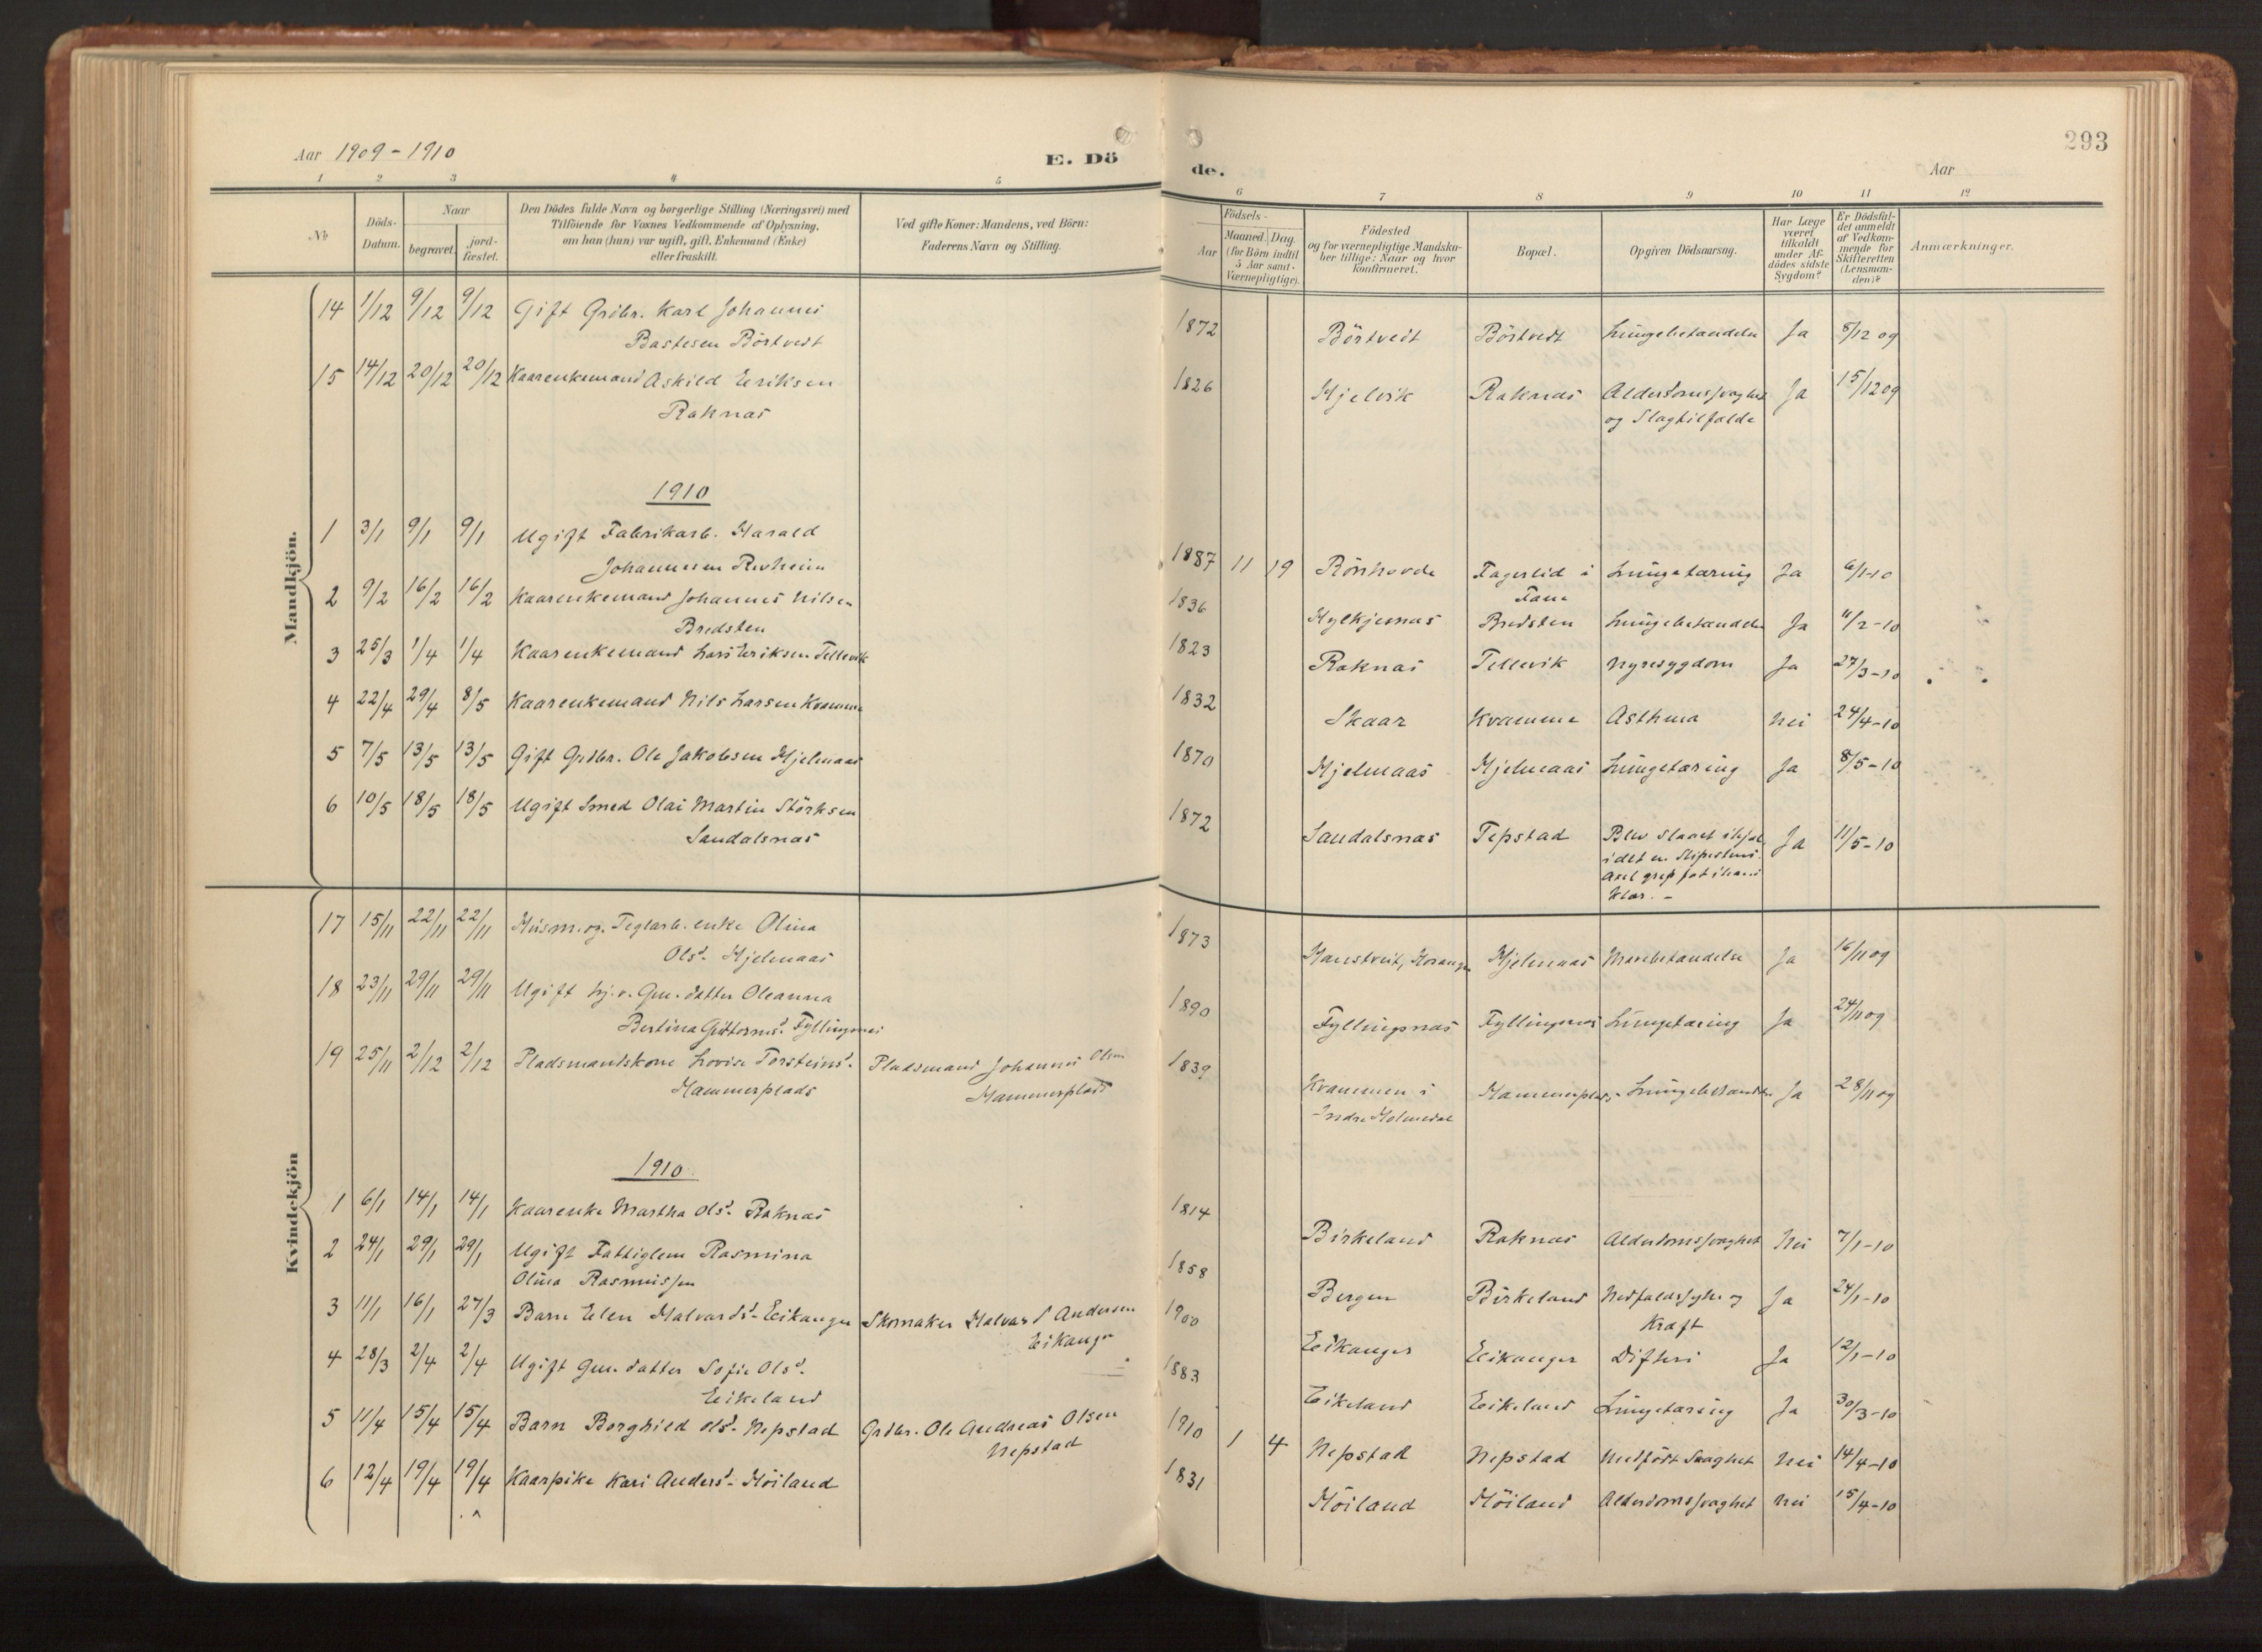 Aar 1909-1910
E. Dö
de.
Aar
293
1 2 3 4 5 6 7 8 9 10 11 12
No
Döds-Datum.
Naar
begravet.
jord-fæstet.
Den Dödes fulde Navn og borgerlige Stilling (Næringsvei) med
Tilföiende for Voxnes Vedkommende af Oplysning,
om han (hun) var ugift, gift, Enkemand (Enke)
eller fraskilt.
Ved gifte Koner: Mandens, ved Börn:
Faderens Navn og Stilling.
Födsels-
Aar
Maaned. Dag.
(for Börn indtil
5 Aar samt
Værnepligtige).
Födested
og for værnepligtige Mandska-
ber tillige: Naar og hvor
konfirmeret.
Bopæl.
Opgiven Dödsaarsag.
Har Læge
været
tilkaldt
under Af-
dödes sidste
Sygdom?
Er Dödsfal-
det anmeldt
af Vedkom-
mende for
Skifteretten
(Lensman-
den)?
Anmærkninger.
Mandkjön.
14 1/12 9/12 9/12 Gift Grdbr. Karl Johannes 1872 Börtvedt Börtvedt Lungebetændelse Ja 5/12 09
Bastesen Börtvedt
15 14/12 20/12 20/12 Kaarenkemand Askild Eriksen 1826 Hjelvik Raknæs Alderdomssvaghet Ja 15/12 09
Raknæs og Slagtilfælde
1910
1 3/1 9/1 9/1 Ugift Fabrikarb. Harald 1887 11 19 Rönhovde Fagerlid i Lungetæring Ja 6/1-10
Johannesen Revheim Fane
2 9/2 16/2 16/2 Kaarenkemand Johannes Nilsen 1836 Hylkjenæs Bredsten Lungebetændelse Ja 11/2-10
Bredsten
3 25/3 1/4 1/4 Kaarenkemand Lars Eriksen Tellevik 1823 Raknæs Tellevik Nyresygdom Ja 27/3-10
4 22/4 29/4 8/5 Kaarenkemand Nils Larsen Kvamme 1832 Skaar Kvamme Asthma Nei 24/4-10
5 7/5 13/5 13/5 Gift Grdbr. Ole Jakobsen Hjelmaas 1870 Hjelmaas Hjelmaas Lungetæring Ja 8/5-10
6 10/5 18/5 18/5 Ugift Smed Olai Martin Störksen 1872 Sandalsnæs Tepstad Blev slaaet ihjel Ja 11/5-10
Sandalsnæs idet en Slipestens
Axel grep fat i hans
Klær. -
Kvindekjön
17 15/11 22/11 22/11 Husm. og Teglarb. enke Olina 1873 Hjelmaas Mavebetændelse Ja 16/11 09
Olsd. Hjelmaas
18 23/11 29/11 29/11 Ugift hj.v. Gm. datter Oleanna 1890 Fyllingsnæs Fyllingsnæs Lungetæring Ja 24/11 09
Bertina Guttormsd. Fyllingsnæs
19 25/11 2/12 2/12 Pladsmandskone Lovise Torsteinsd. Pladsmand Johannes Olsen 1839 Kvammen i Hammerplads Lungebetændelse Ja 28/11 09
Hammerplads Hammerplads Indre Holmedal
1910
1 6/1 14/1 14/1 Kaarenke Martha Olsd. Raknæs 1814 Birkeland Raknæs Alderdomssvaghet Nei 7/1-10
2 24/1 29/1 29/1 Ugift Fattiglem Rasmina 1858 Bergen Birkeland Nedfaldssyke og Ja 24/1-10
Olina Rasmussen Kræft
3 11/1 16/1 27/3 Barn Elen Halvardsd. Eikanger Skomaker Halvard Andersen 1900 Eikanger Eikanger Difteri Ja 12/1-10
Eikanger
4 28/3 2/4 2/4 Ugift Gm. datter Sofie Olsd. 1883 Eikeland Eikeland Lungetæring Ja 30/3-10
Eikeland
5 11/4 15/4 15/4 Barn Borghild Olsd. Nepstad Grdbr. Ole Andreas Olsen 1910 1 4 Nepstad Nepstad Medfödt Svaghet Nei 14/4-10
Nepstad
6 12/4 19/4 19/4 Kaarpike Kari Andersd. Höiland 1831 Höiland Höiland Alderdomssvaghet Nei 15/4-10